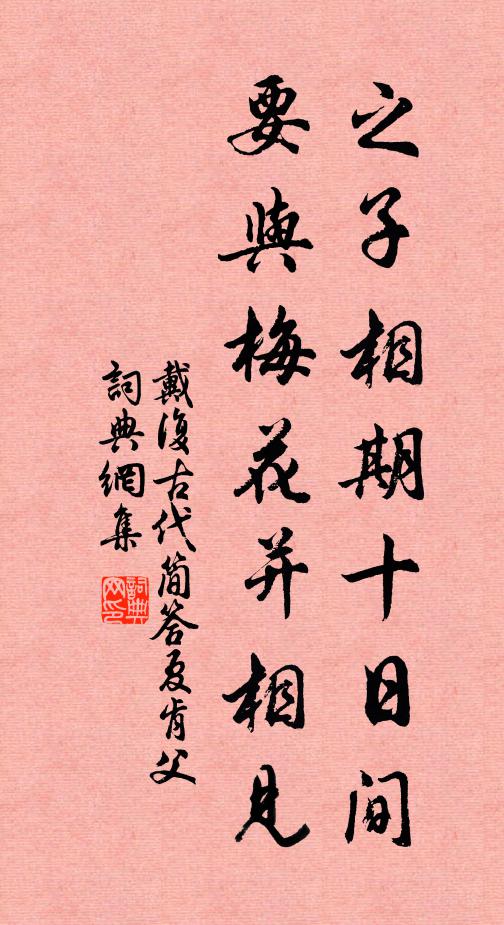 之子相期十日间
要與梅花并相見
戴復古代简答夏肯父
詞典網集
詞典
网印